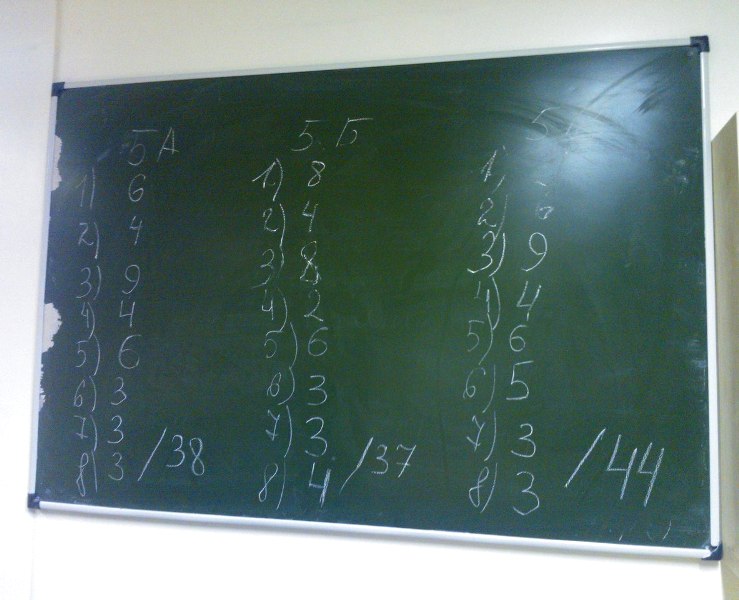 5 А
1) 6
2) 4
3) 9
4) 4
5) 6
6) 3
7) 3
8) 3 /38
5 Б
1) 8
2) 4
3) 8
4) 2
5) 6
6) 3
7) 3
8) 4 /37
5
1)
2)
3) 9
4) 4
5) 6
6) 5
7) 3
8) 3 /44